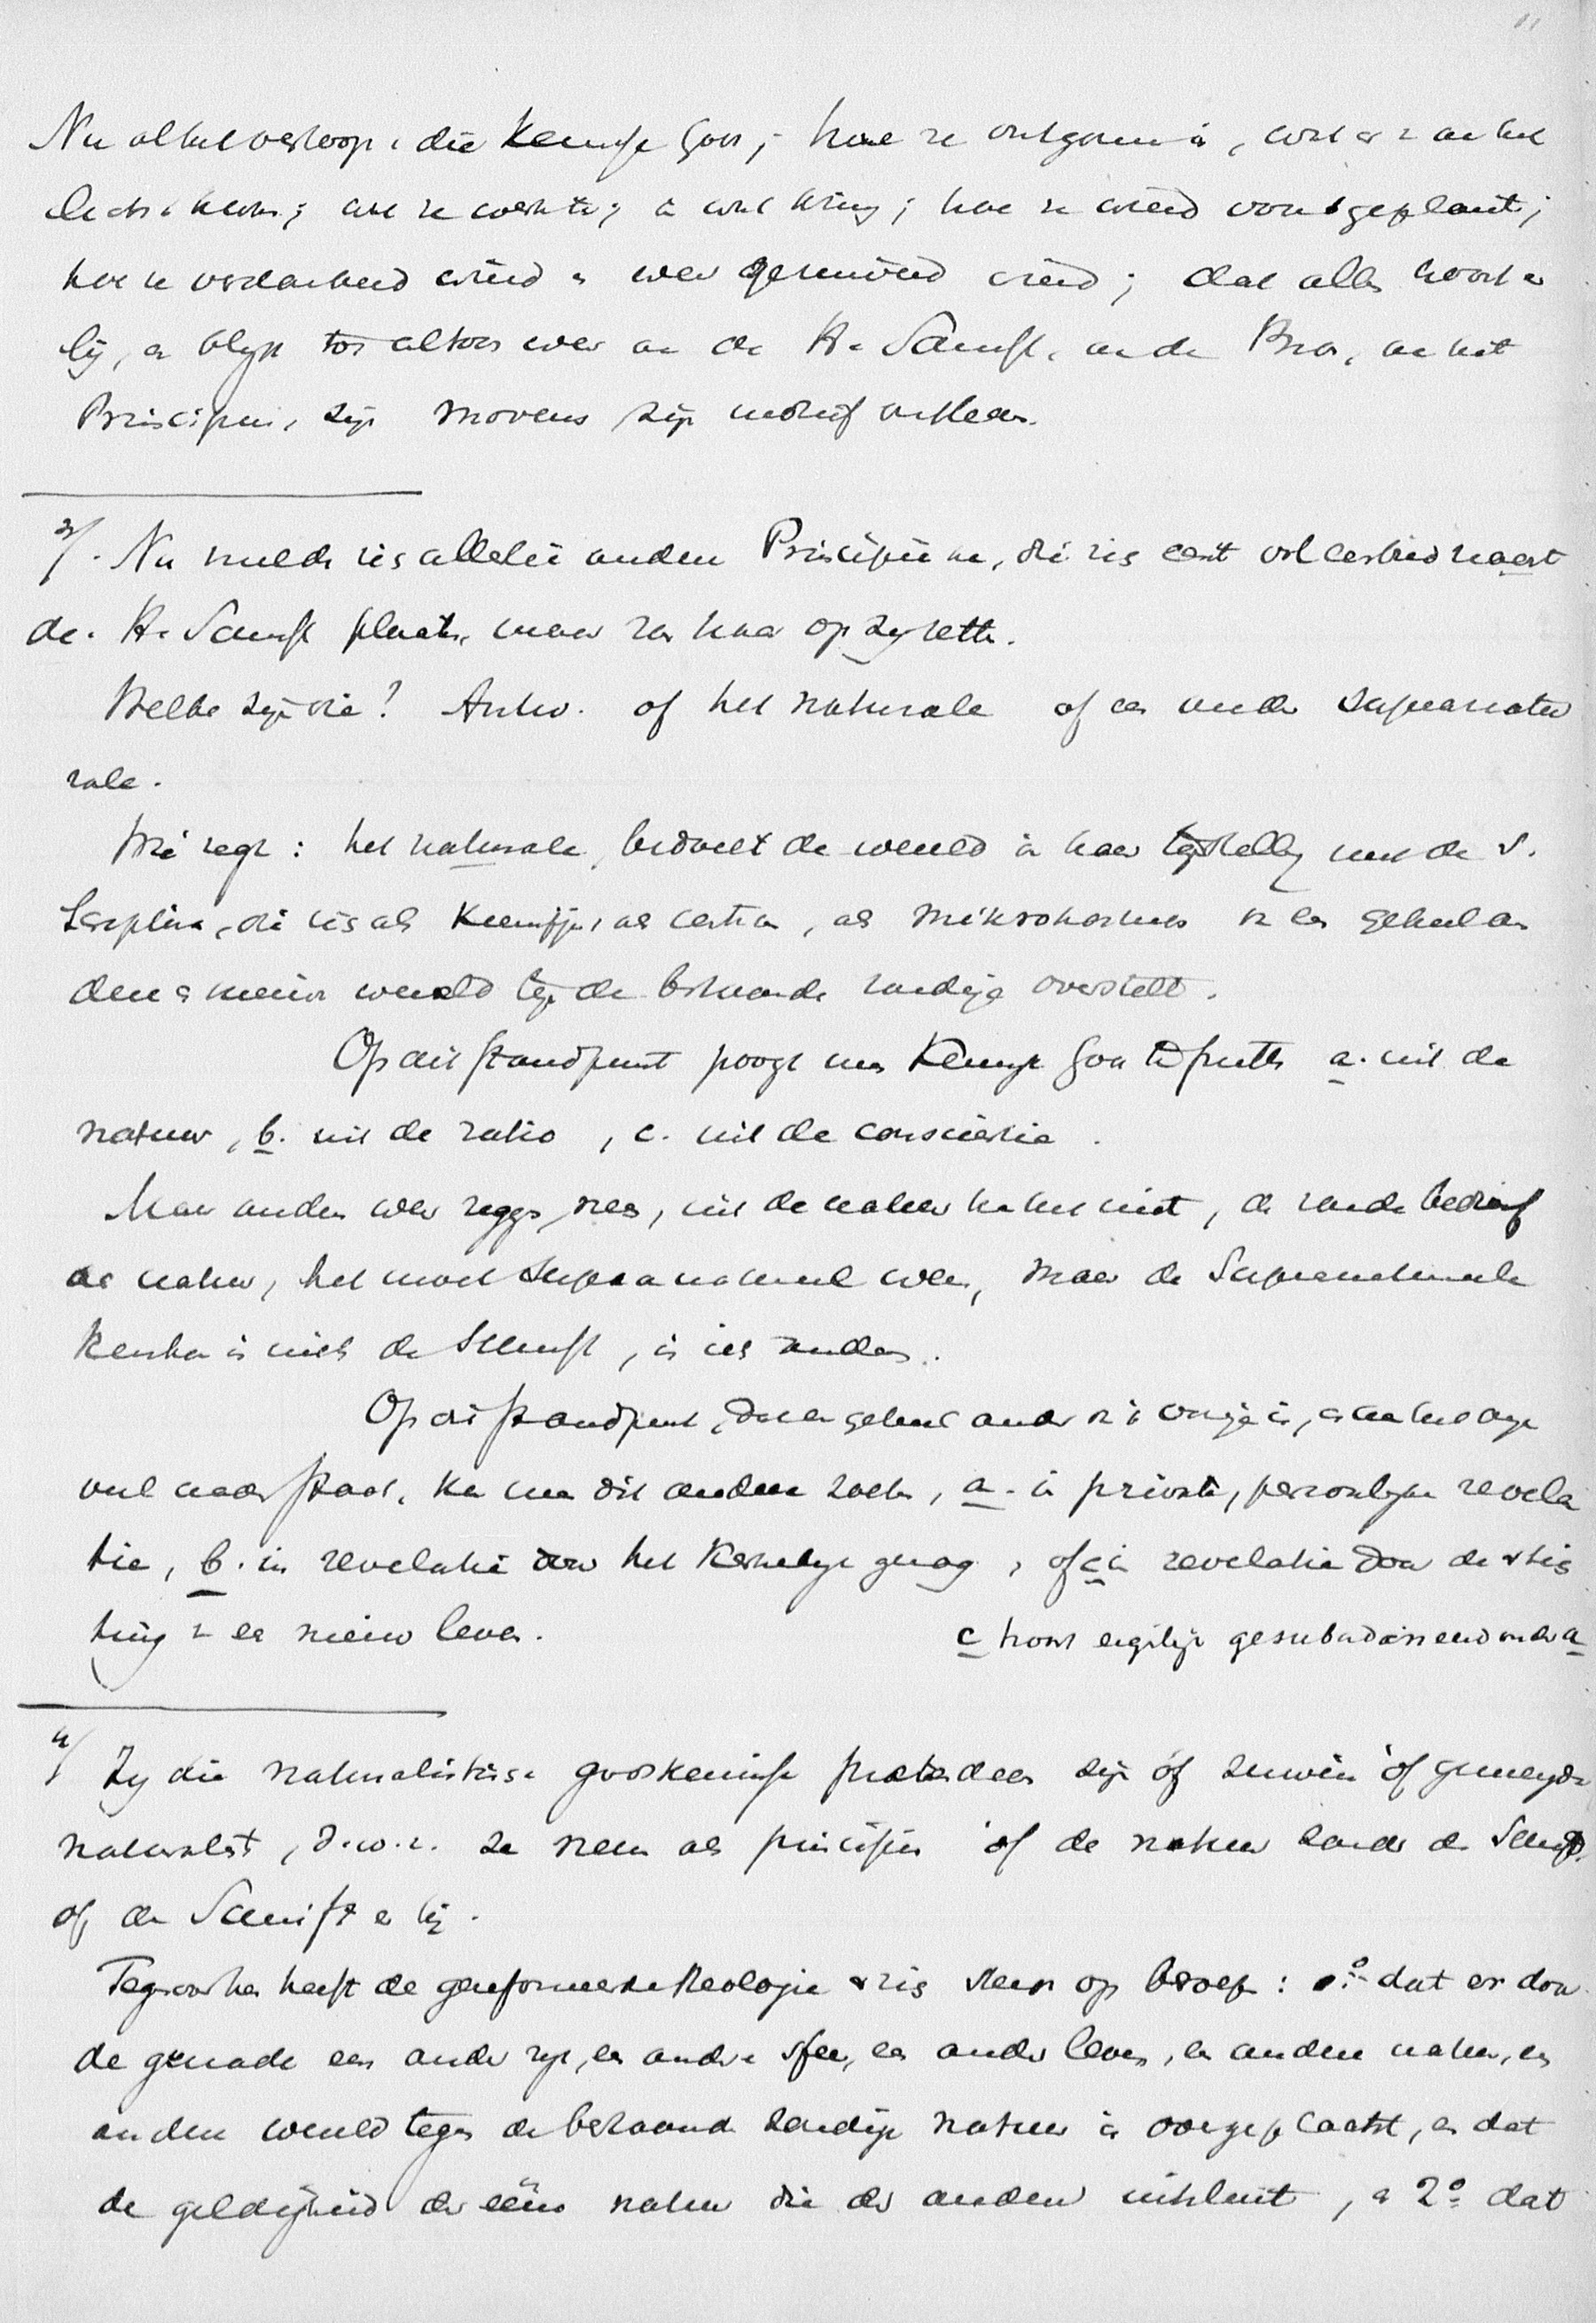 11
Nu al het verloop v die Kennisse Gods; hoe ze ontgonnen is, wat er van het
licht; hoe ze werkte, in wat kring; hoe ze wierd voortgeplant;
hoe ze verdonkerd wierd en weer gereinigd wierd; dat alles hoort er
bij, en blijft toch altoos weer aan de H. Schrift, aan de Bron, aan het
Principium, zijn movens zijn motief ontleenen.
3/. Nu melde zich allerlei andere Principiën aan, die zich eerst wel eerbied naast
de H. Schrift plaatsen, maar dan haar op zij zetten.
Welke zijn die? Antw. of het naturale of een ander supranatu
rale.
Wie zegt: het naturale, bedoelt de wereld in haar tegenstelling met de S.
Scriptura, die zich als Kennisse, als mikrokosmos in een geheel an
dere en nieuwe wereld tegen de bestaande zondige overstelt.
Op dit standpunt poogt men Kennisse Gods te putten a. uit de
natuur, b. uit de ratio, c. uit de conscientia.
Maar anderen weer zeggen, neen, uit de natuur kan het niet, de zonde bedierf
de natuur, het moet supranatureel wezen, maar de Supranatureele
kenbron is niet de Schrift, is iets anders.
Op dit standpunt, dat een geheel ander dan 't vorige is, en aan het onze
veel nader staat, kan men dit andere zoeken, a. in private, persoonlijke revela
tie, b. in revelatie door het Kerkelijk gezag, of c. in revelatie door de stich
ting v een nieuw leven. c hoort eigenlijk gesubordineerd onder a
4/ Zij die naturalistische godskennisse prefereeren zijn óf zuivere óf gemengde
naturalist, d.w.z. ze nemen als principium óf de natuur zonder de Schrift,
of de Schrift er bij.
Tegenover hen heeft de gereformeerde theologie zich steeds op beroepen: 1º dat er door
de genade een ander rijk, een andere sfeer, een ander leven, een andere natuur, een
andere wereld tegen de bestaande zondige natuur is overgeplaatst, en dat
de geldigheid der ééne natuur die der andere uitsluit, en 2º dat